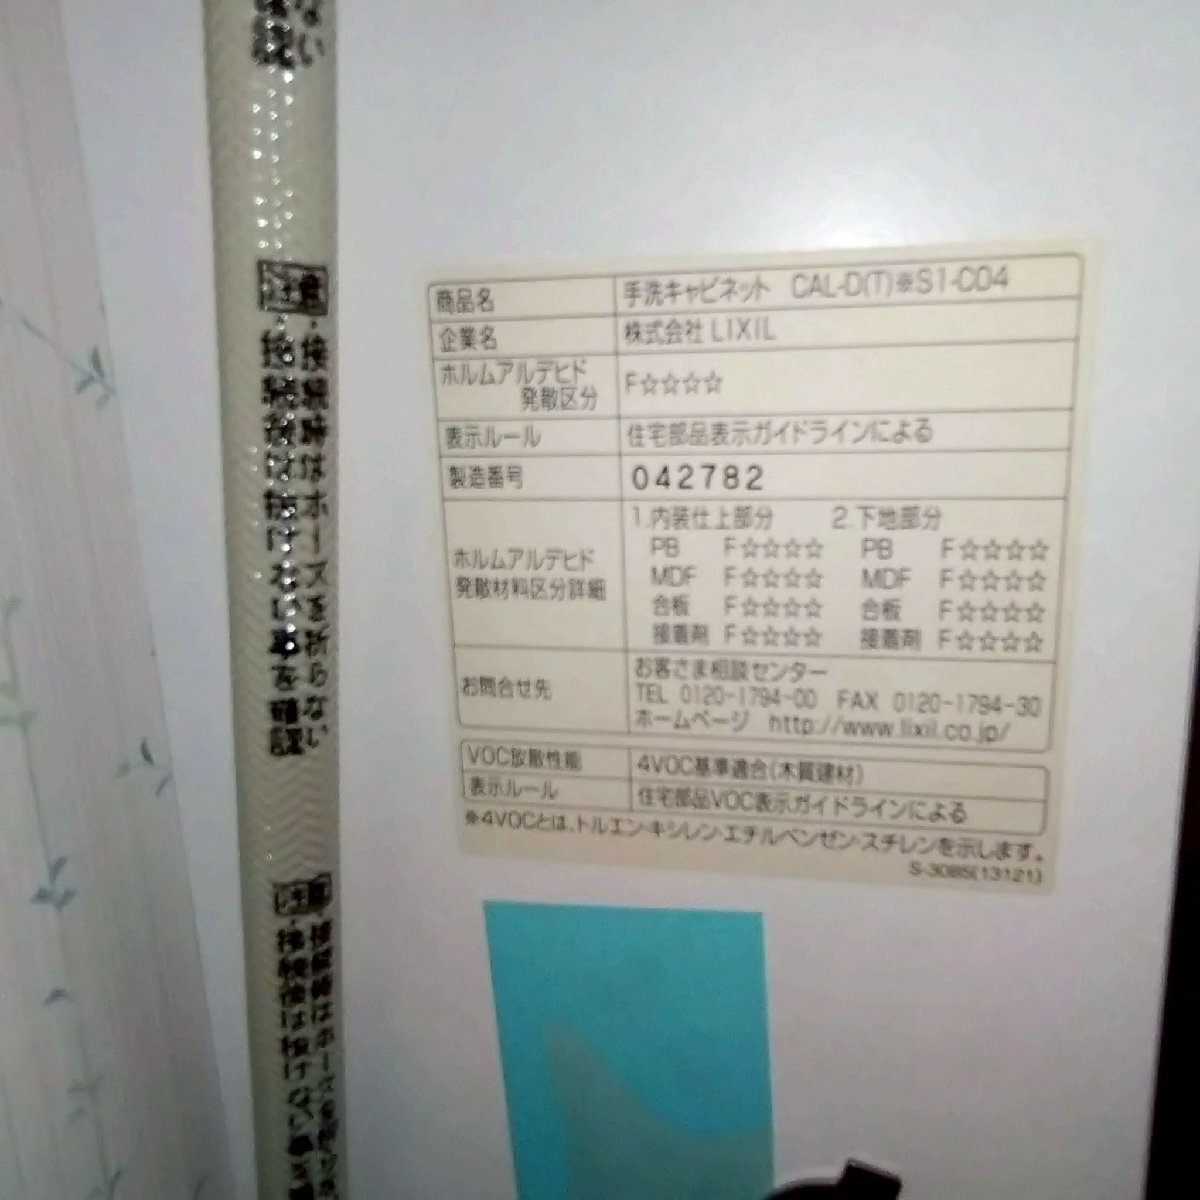 商品名 手洗キャビネット CAL-D(T)※S1-C04
企業名 株式会社 LIXIL
ホルムアルデヒド
発散区分 F☆☆☆☆
表示ルール 住宅部品表示ガイドラインによる
製造番号 042782
ホルムアルデヒド
発散材料区分詳細
1.内装仕上部分 2.下地部分
PB F☆☆☆☆ PB F☆☆☆☆
MDF F☆☆☆☆ MDF F☆☆☆☆
合板 F☆☆☆☆ 合板 F☆☆☆☆
接着剤 F☆☆☆☆ 接着剤 F☆☆☆☆
お問合せ先
お客さま相談センター
TEL 0120-1794-00 FAX 0120-1794-30
ホームページ http://www.lixil.co.jp/
VOC放散性能 4VOC基準適合(木質建材)
表示ルール 住宅部品VOC表示ガイドラインによる
※4VOCとは、トルエン・キシレン・エチルベンゼン・スチレンを示します。
S-3085(13121)
ない
注意・接続時はホースを折らない
・接続後は抜けない事を確認
注意・接続時はホースを
・接続後は抜けない事を